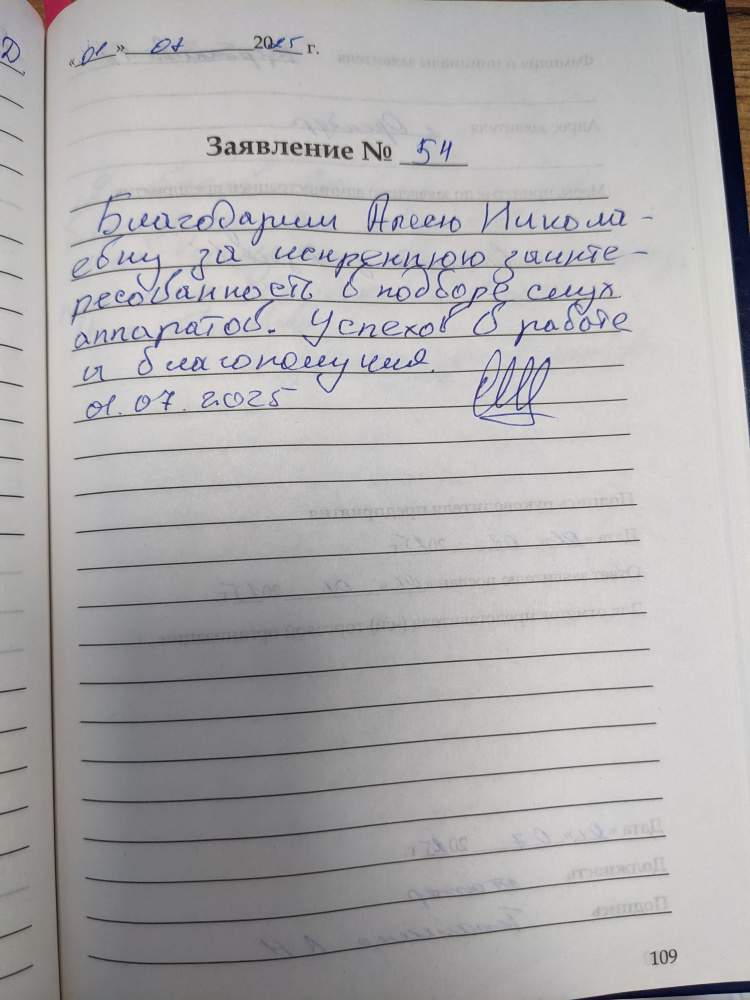 «01» 07 2025 г.
Заявление № 54
Благодарим Алесю Никола-
евну за искреннюю заинте-
ресованность в подборе слух
аппаратов. Успехов в работе
и благополучия.
01.07.2025
109